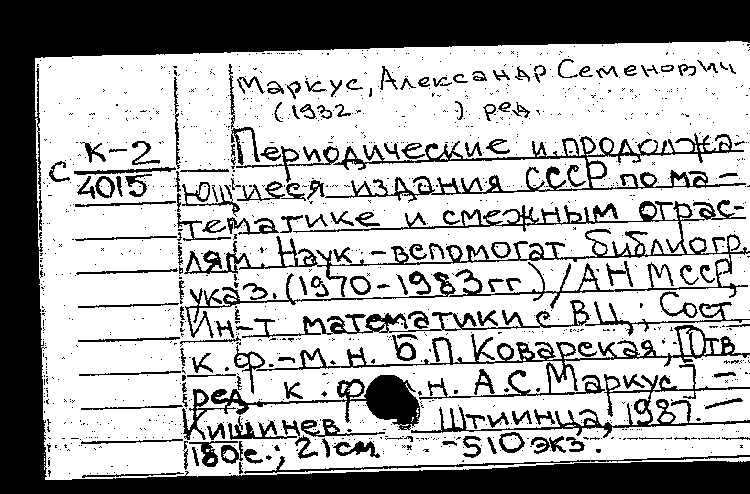 Маркус, Александр Семенович
(1932- ) ред.
С К-2
4015
Периодические и продолжа-
ющиеся издания СССР по ма-
тематике и смежным отрас-
лям: Наук.-вспомогат. библиогр.
указ. (1970-1983 гг.) / АН МССР,
Ин-т математики с ВЦ; Сост.
к.ф.-м.н. Б.П. Коварская; [Отв.
ред. к.ф. н. А.С. Маркус] -
Кишинев: Штиинца, 1987. -
180 с.; 21 см. -510 экз.